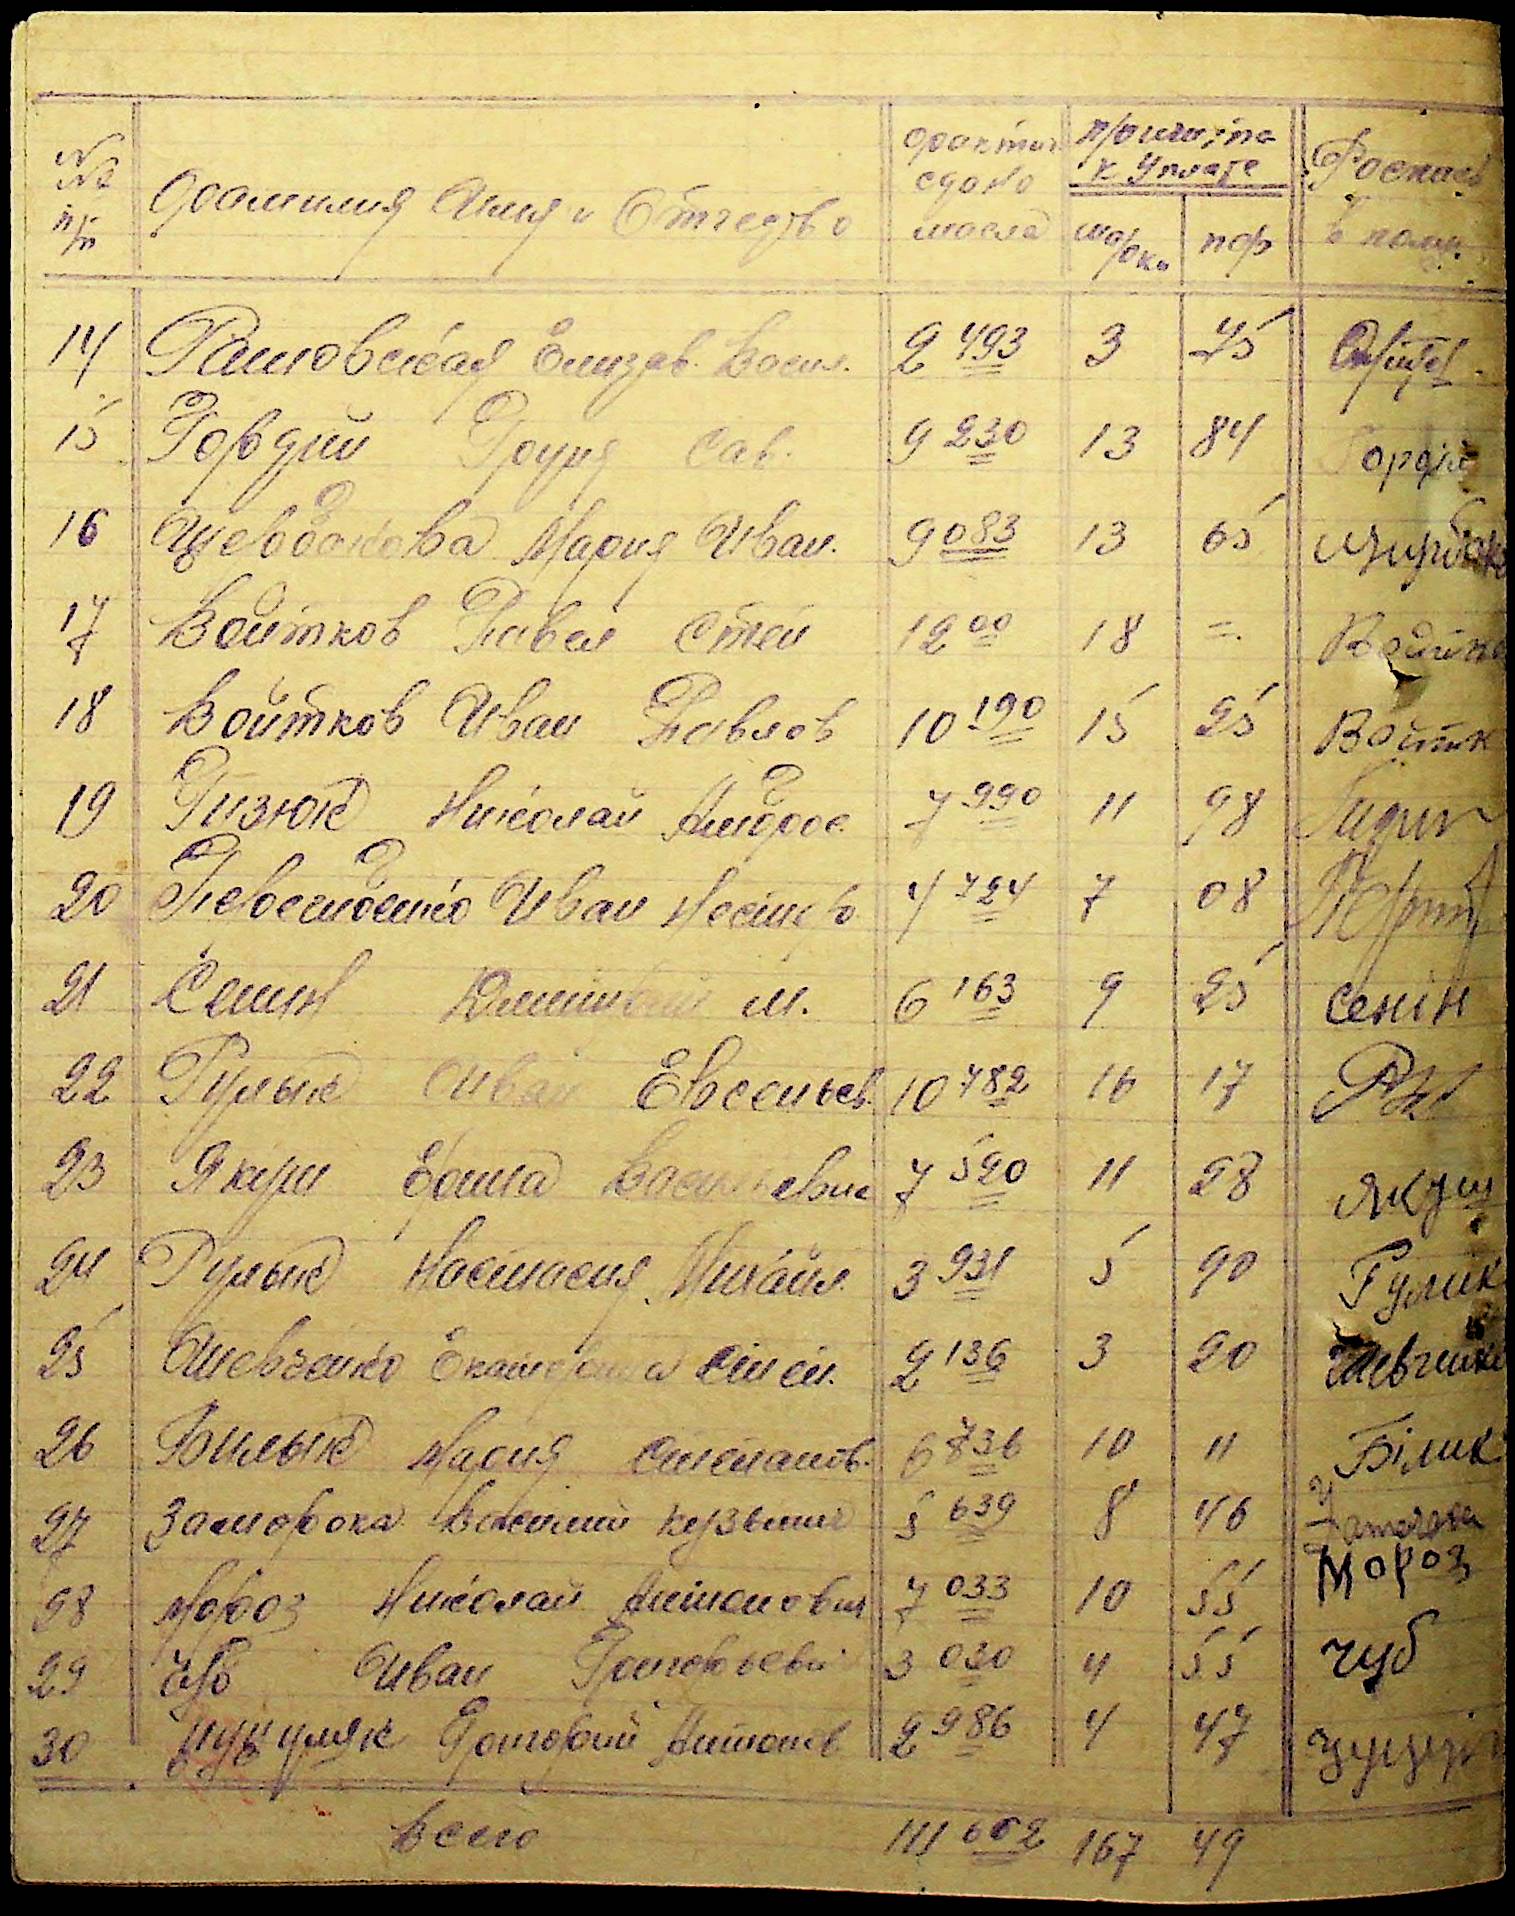 №№ п/п Фамилия Имя и Отчество фактич сдано масла причит. к уплате марки пф Роспись в получ.
14 Рашовская Елизав. Васил. 2 493 3 75
15 Гордий Груня Сав. 9 230 13 84 Гордій
16 Щебокова Мария Иван. 9 083 13 65
17 Войтков Павел Степ 12 00 18 = Войтко
18 Войтков Иван Павлов 10 190 15 25 Войтк
19 Гизюк Николай Амброс. 7 990 11 98
20 Иван Нестер 4 724 7 08
21 Сенин Дмитрий М. 6 163 9 25 Сенін
22 Гулык Иван Евсеньев. 10 782 16 17
23 Якуш Евсиевна 7 520 11 28 Якуш
24 Гулык Настасия Михайл. 3 931 5 90 Гулик
25 Шевченко Екатерина Степ. 2 136 3 20 Шевченко
26 Билык Мария Степанов. 6 736 10 11 Білик
27 Заморока Василий Кузьмич 5 639 8 46 Заморока
28 Мороз Николай Антонович 7 033 10 55 Мороз
29 Чуб Иван Григорьеви 3 030 4 55 Чуб
30 Цуцуляк Григорий Антонов 2 986 4 47
Всего 111 602 167 49